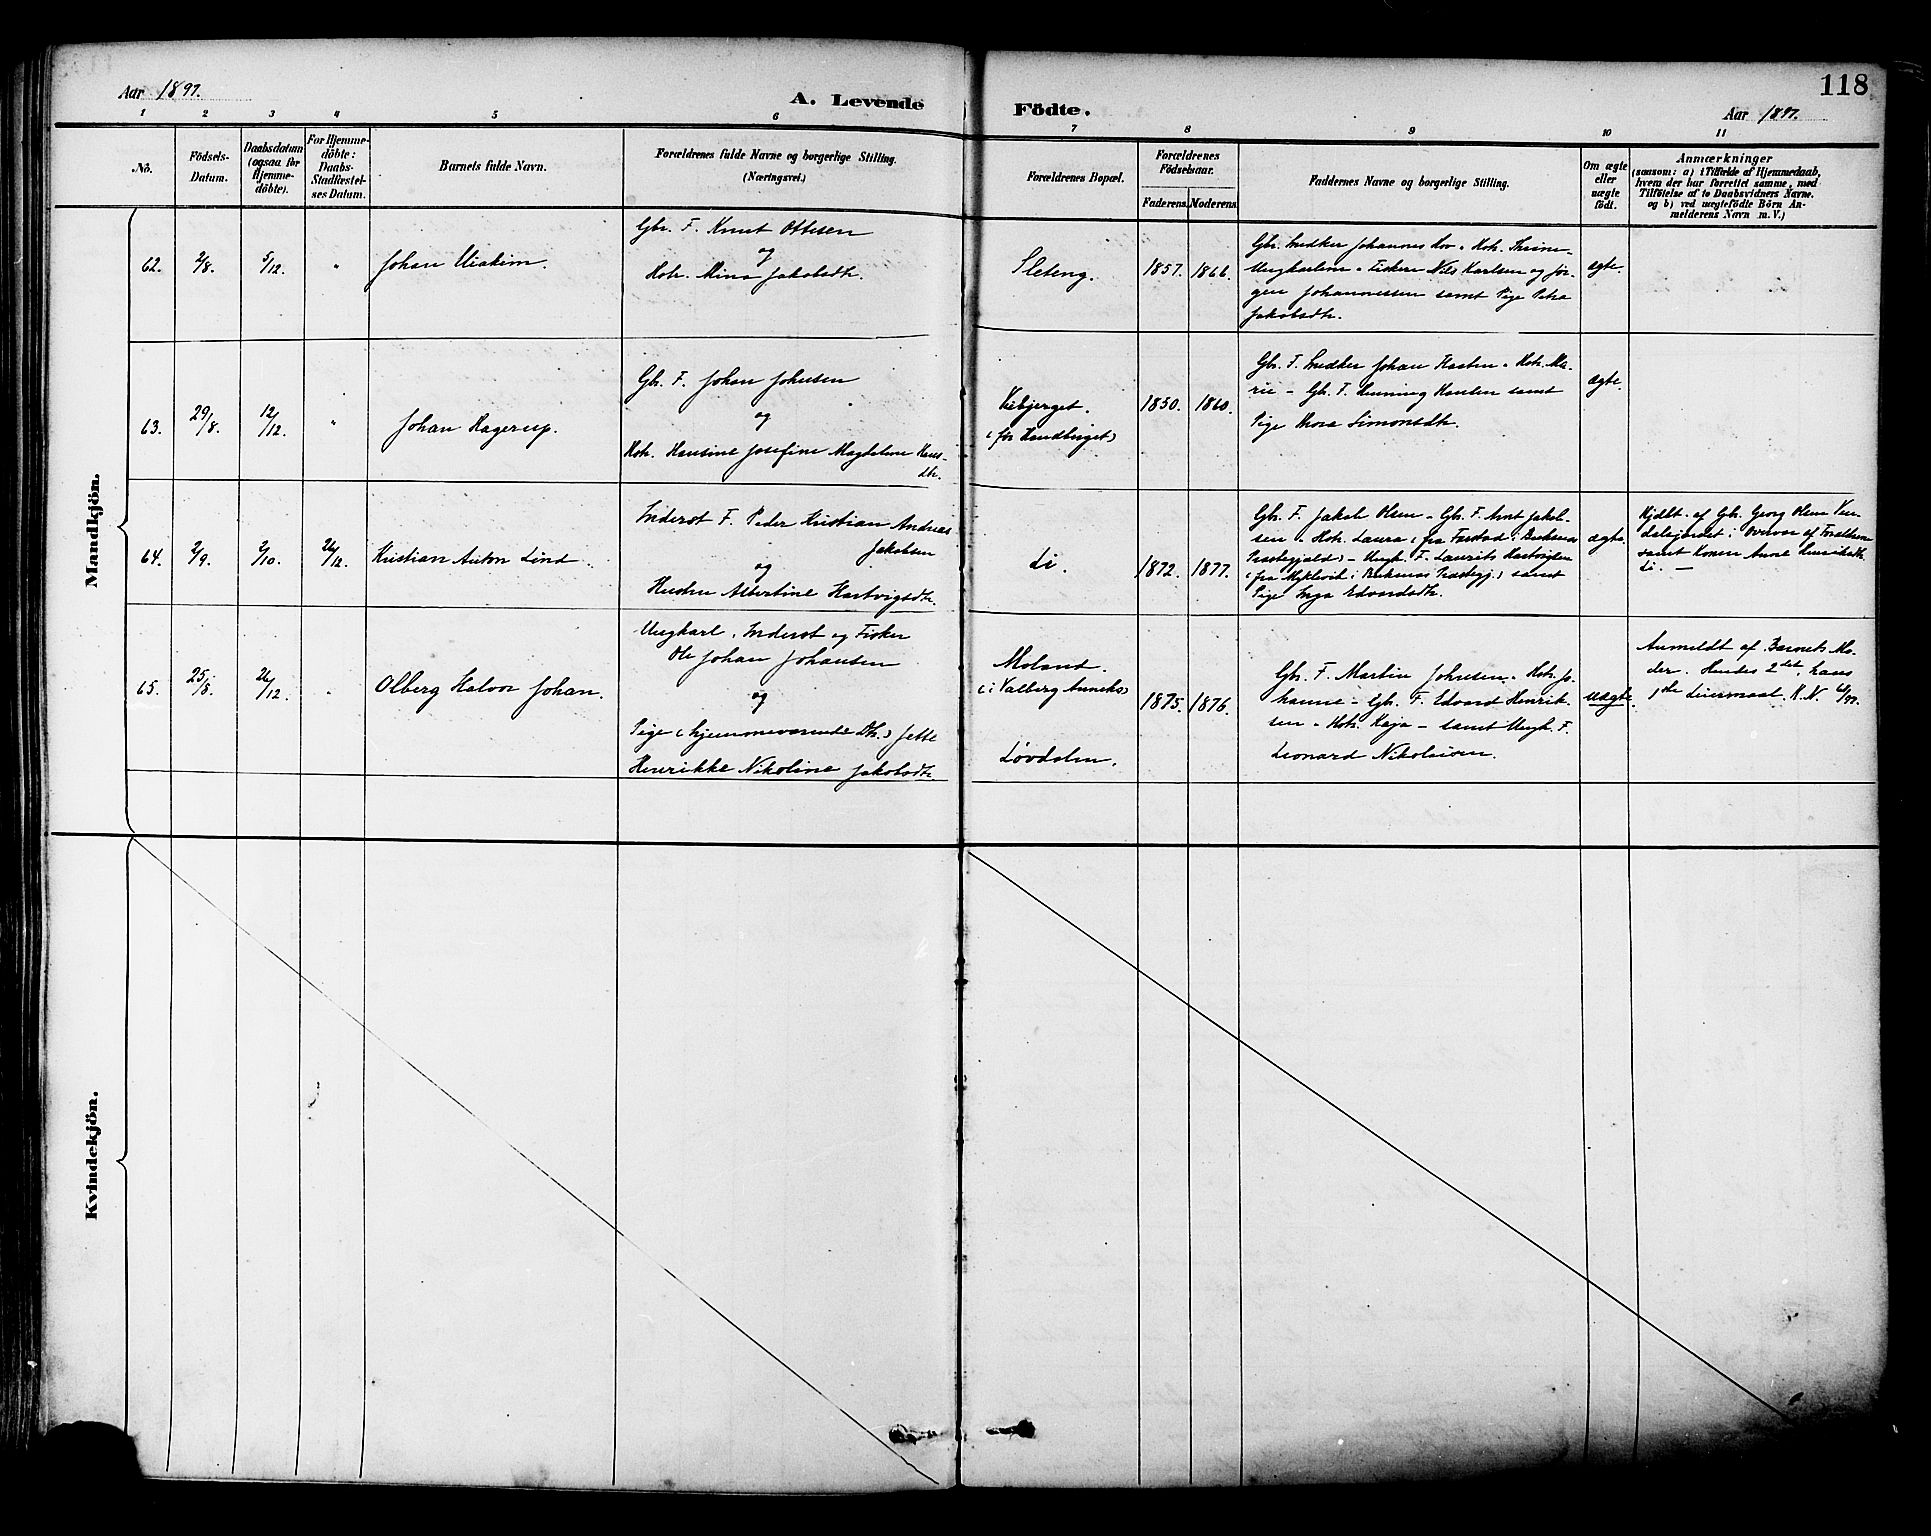 118
Aar 1897.
A. Levende Födte.
Aar 1897.
1 2 3 4 5 6 7 8 9 10 11
No.
Födsels-
Datum.
Daabsdatum
(ogsaa för
Hjemme-
döbte).
For Hjemme-
döbte:
Daabs-
Stadfæstel-
ses Datum.
Barnets fulde Navn.
Forældrenes fulde Navne og borgerlige Stilling.
(Næringsvei.)
Forældrenes Bopæl.
Forældrenes
Födselsaar.
Faderens. Moderens.
Faddernes Navne og borgerlige Stilling.
Om ægte
eller
uægte
födt.
Anmærkninger
(saasom: a) i Tilfælde af Hjemmedaab,
hvem der har forrettet samme, med
Tilföielse af to Daabsvidners Navne.
og b) ved uægtefödte Börn An-
melderens Navn m. V.)
Mandkjön.
62. 2/8. 5/12. "
Johan
Gbr. F. Knut Ottesen
og
Hstr. Mina Jakobsdtr.
Sleteng.
1857. 1866.
Gbr. Snedker Johannes
Nils Karlsen og Jør-
gen Johannessen samt Pige Petra
Jakobsdtr.
ægte.
63. 29/8. 12/12. "
Johan Hagerup.
Gbr. F. Johan Johnsen
og
Hstr. Hansine Josefine Magdalene Hans-
dtr.
1850. 1860.
Gbr. F. Snedker Johan Hstr. Ma-
rie – Gbr. F. Henning Hansen samt
Pige Thora Simonsdtr.
ægte.
64. 2/9. 3/10. 26/12.
Kristian Anton Lind
Inderst F. Peder Kristian Andreas
Jakobsen
og
Hustru Albertine Hartvigsdtr.
Li.
1872. 1877.
Gbr. F. Jakob Olsen – Gbr. F. Arnt Jakob-
sen – Hstr. Laura (fra Farstad i Buksnes
Præstegjæld) – Ungk. F. Laurits Hartvigsen
(fra Myklevik i Buksnes Præstegj.) samt
Pige Inga Edvardsdtr.
ægte.
Hjdbt. af Gbr. Georg Olsen
i Overvær af Forældrene
samt Konen Anne Henriksdtr.
Li. –
65. 25/8. 26/12. "
Olberg Halvor Johan.
Ungkarl, Inderst og Fisker
Ole Johan Johansen
og
Pige (hjemmeværende Dtr.) Jette
Henrikke Nikoline Jakobsdtr.
Moland.
(i Valberg Anneks)
Løvdalen.
1875. 1876.
Gbr. F. Martin Johnsen – Hstr. Jo-
hanne – Gbr. F. Edvard Henrik-
sen – Hstr. Kaja – samt Ungk. F.
Leonard Nikolaisen.
uægte.
Anmeldt af Barnets Mo-
der. Hendes 2det, hans
1ste Leiermaal.
Kvindekjön.